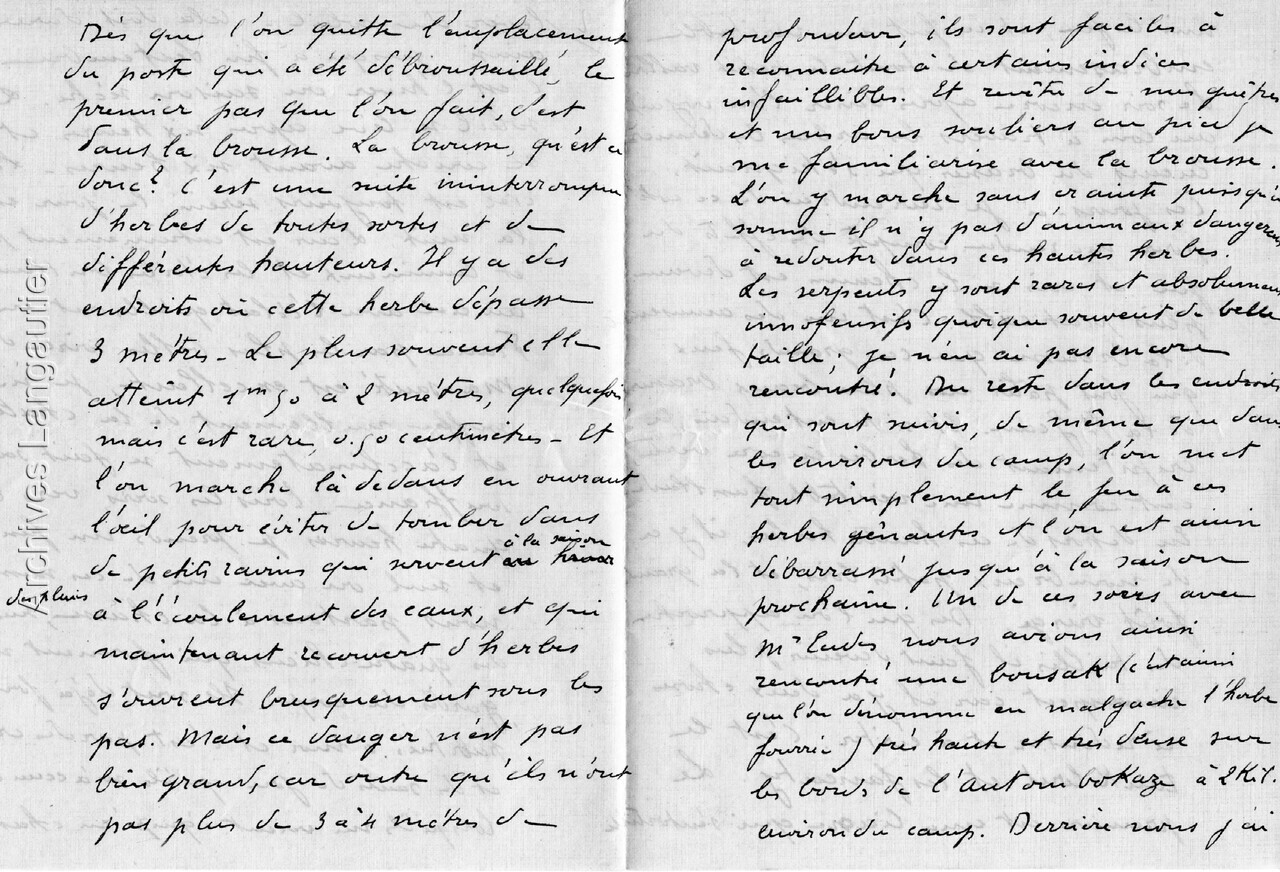 Dès que l'on quitte l'emplacement
du poste qui a été débroussaillé, le
premier pas que l'on fait, c'est
dans la brousse. La brousse, qu'est ce
donc? C'est une suite ininterrompue
d'herbes de toutes sortes et de
différentes hauteurs. Il y a des
endroits où cette herbe dépasse
3 mètres - Le plus souvent elle
atteint 1m50 à 2 mètres, quelquefois
mais c'est rare, 0.50 centimètres - Et
l'on marche là dedans en ouvrant
l'œil pour éviter de tomber dans
de petits ravins qui servent à la saison
des pluies
à l'écoulement des eaux, et qui
maintenant recouvert d'herbes
s'ouvrent brusquement sous les
pas. Mais ce danger n'est pas
bien grand, car outre qu'ils n'ont
pas plus de 3 à 4 mètres de
profondeur, ils sont faciles à
reconnaitre à certains indices
infaillibles. Et revêtu de mes guêtres
et mes bons souliers au pied je
me familiarise avec la brousse.
L'on y marche sans crainte puisqu'en
somme il n'y pas d'animaux dangereux
à redouter dans ces hautes herbes.
Les serpents y sont rares et absolument
innofensifs quoique souvent de belle
taille; je n'en ai pas encore
rencontré. Du reste dans les endroits
qui sont suivis, de même que dans
les environs du camp, l'on met
tout simplement le feu à ces
herbes gênantes et l'on est ainsi
débarrassé jusqu'à la saison
prochaine. Un de ces soirs avec
Mr Eudes nous avions ainsi
rencontré une bousak (c'est ainsi
que l'on dénomme en malgache l'herbe
fourrée) très haute et très dense sur
les bords de l'Antombokaze à 2 Kil.
environ du camp. Derrière nous j'ai
Archives Langautier